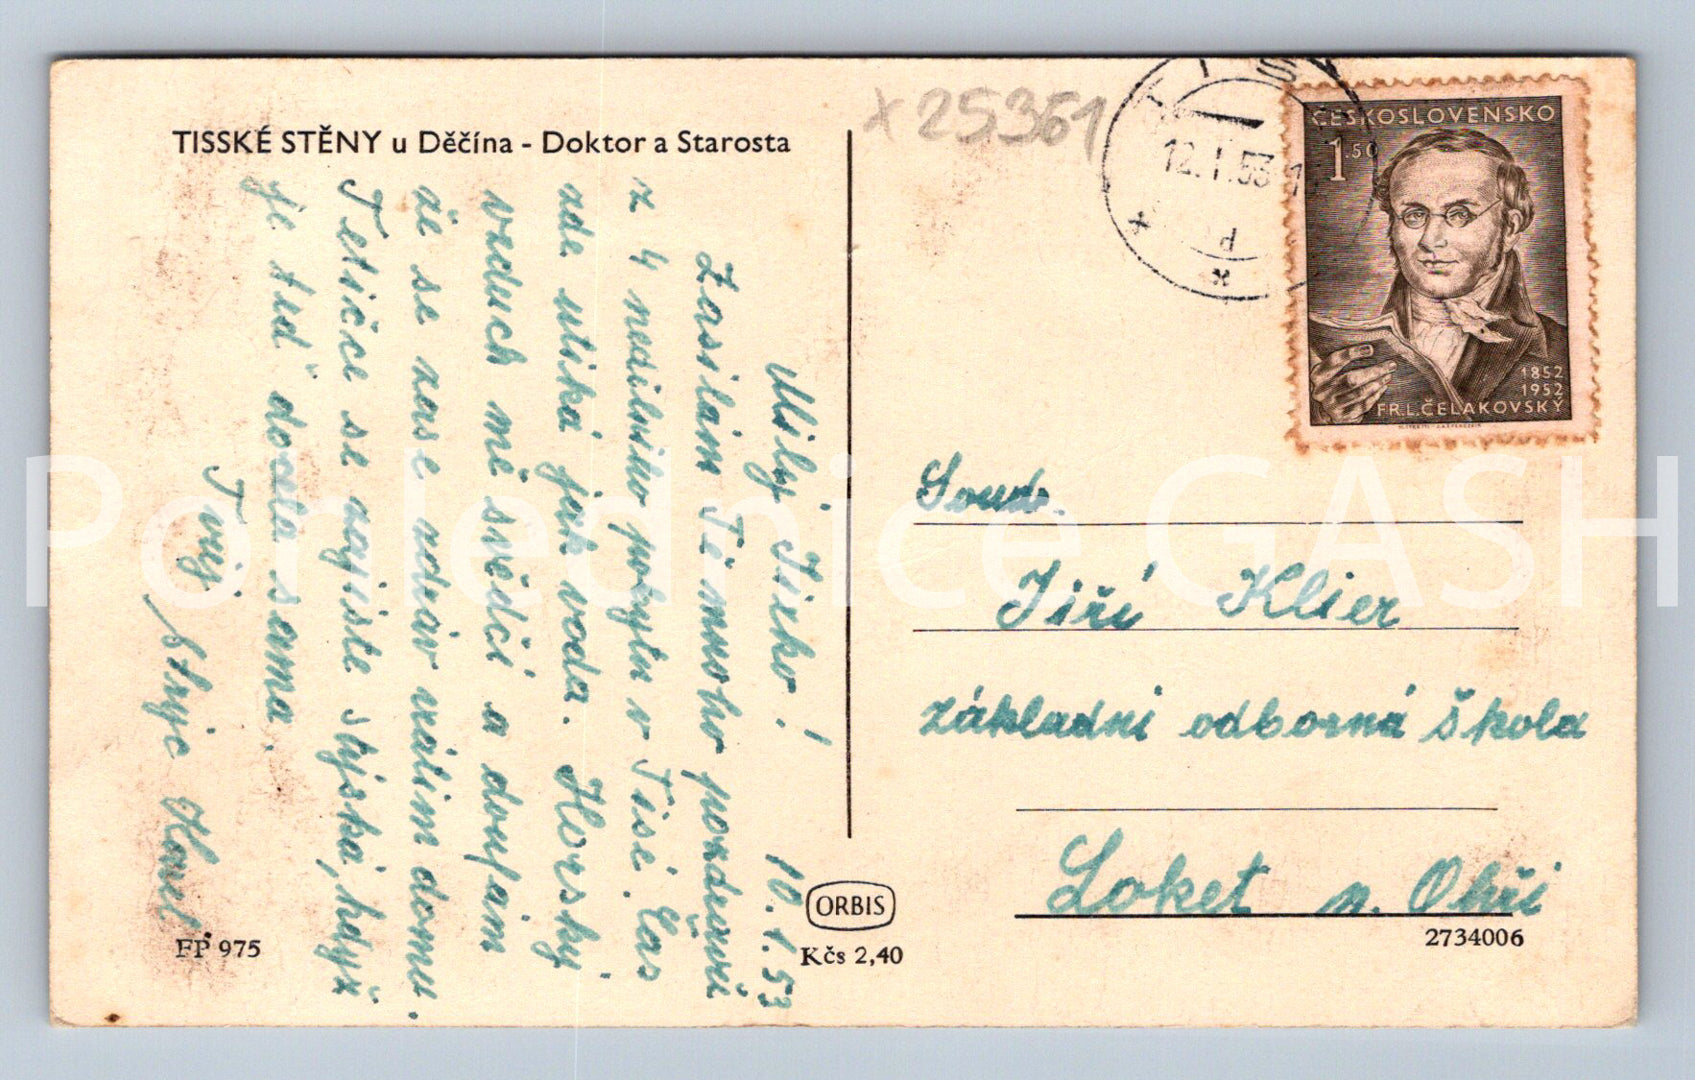 TISSKÉ STĚNY u Děčína - Doktor a Starosta
Milý Jirko!
10.1.53
Zasílám Ti mnoho pozdravů
z 4 nedělního pobytu v Tisé. Čas
ade utíká jak voda. Horský
vzduch mě svědčí a doufám
že se zase zdráv vrátím domu.
Tetičce se zajisté stýská, když
je teď docela sama.
Tvůj strýc Karel.
FP 975
ORBIS
Kčs 2,40
x 25361
TIS
12.I.53-1
d
ČESKOSLOVENSKO
1.50
1852
1952
FR.L.ČELAKOVSKÝ
Soudr.
Jiří Klier
základní odborná škola
Loket n. Ohří
2734006
Pohlednice GASH